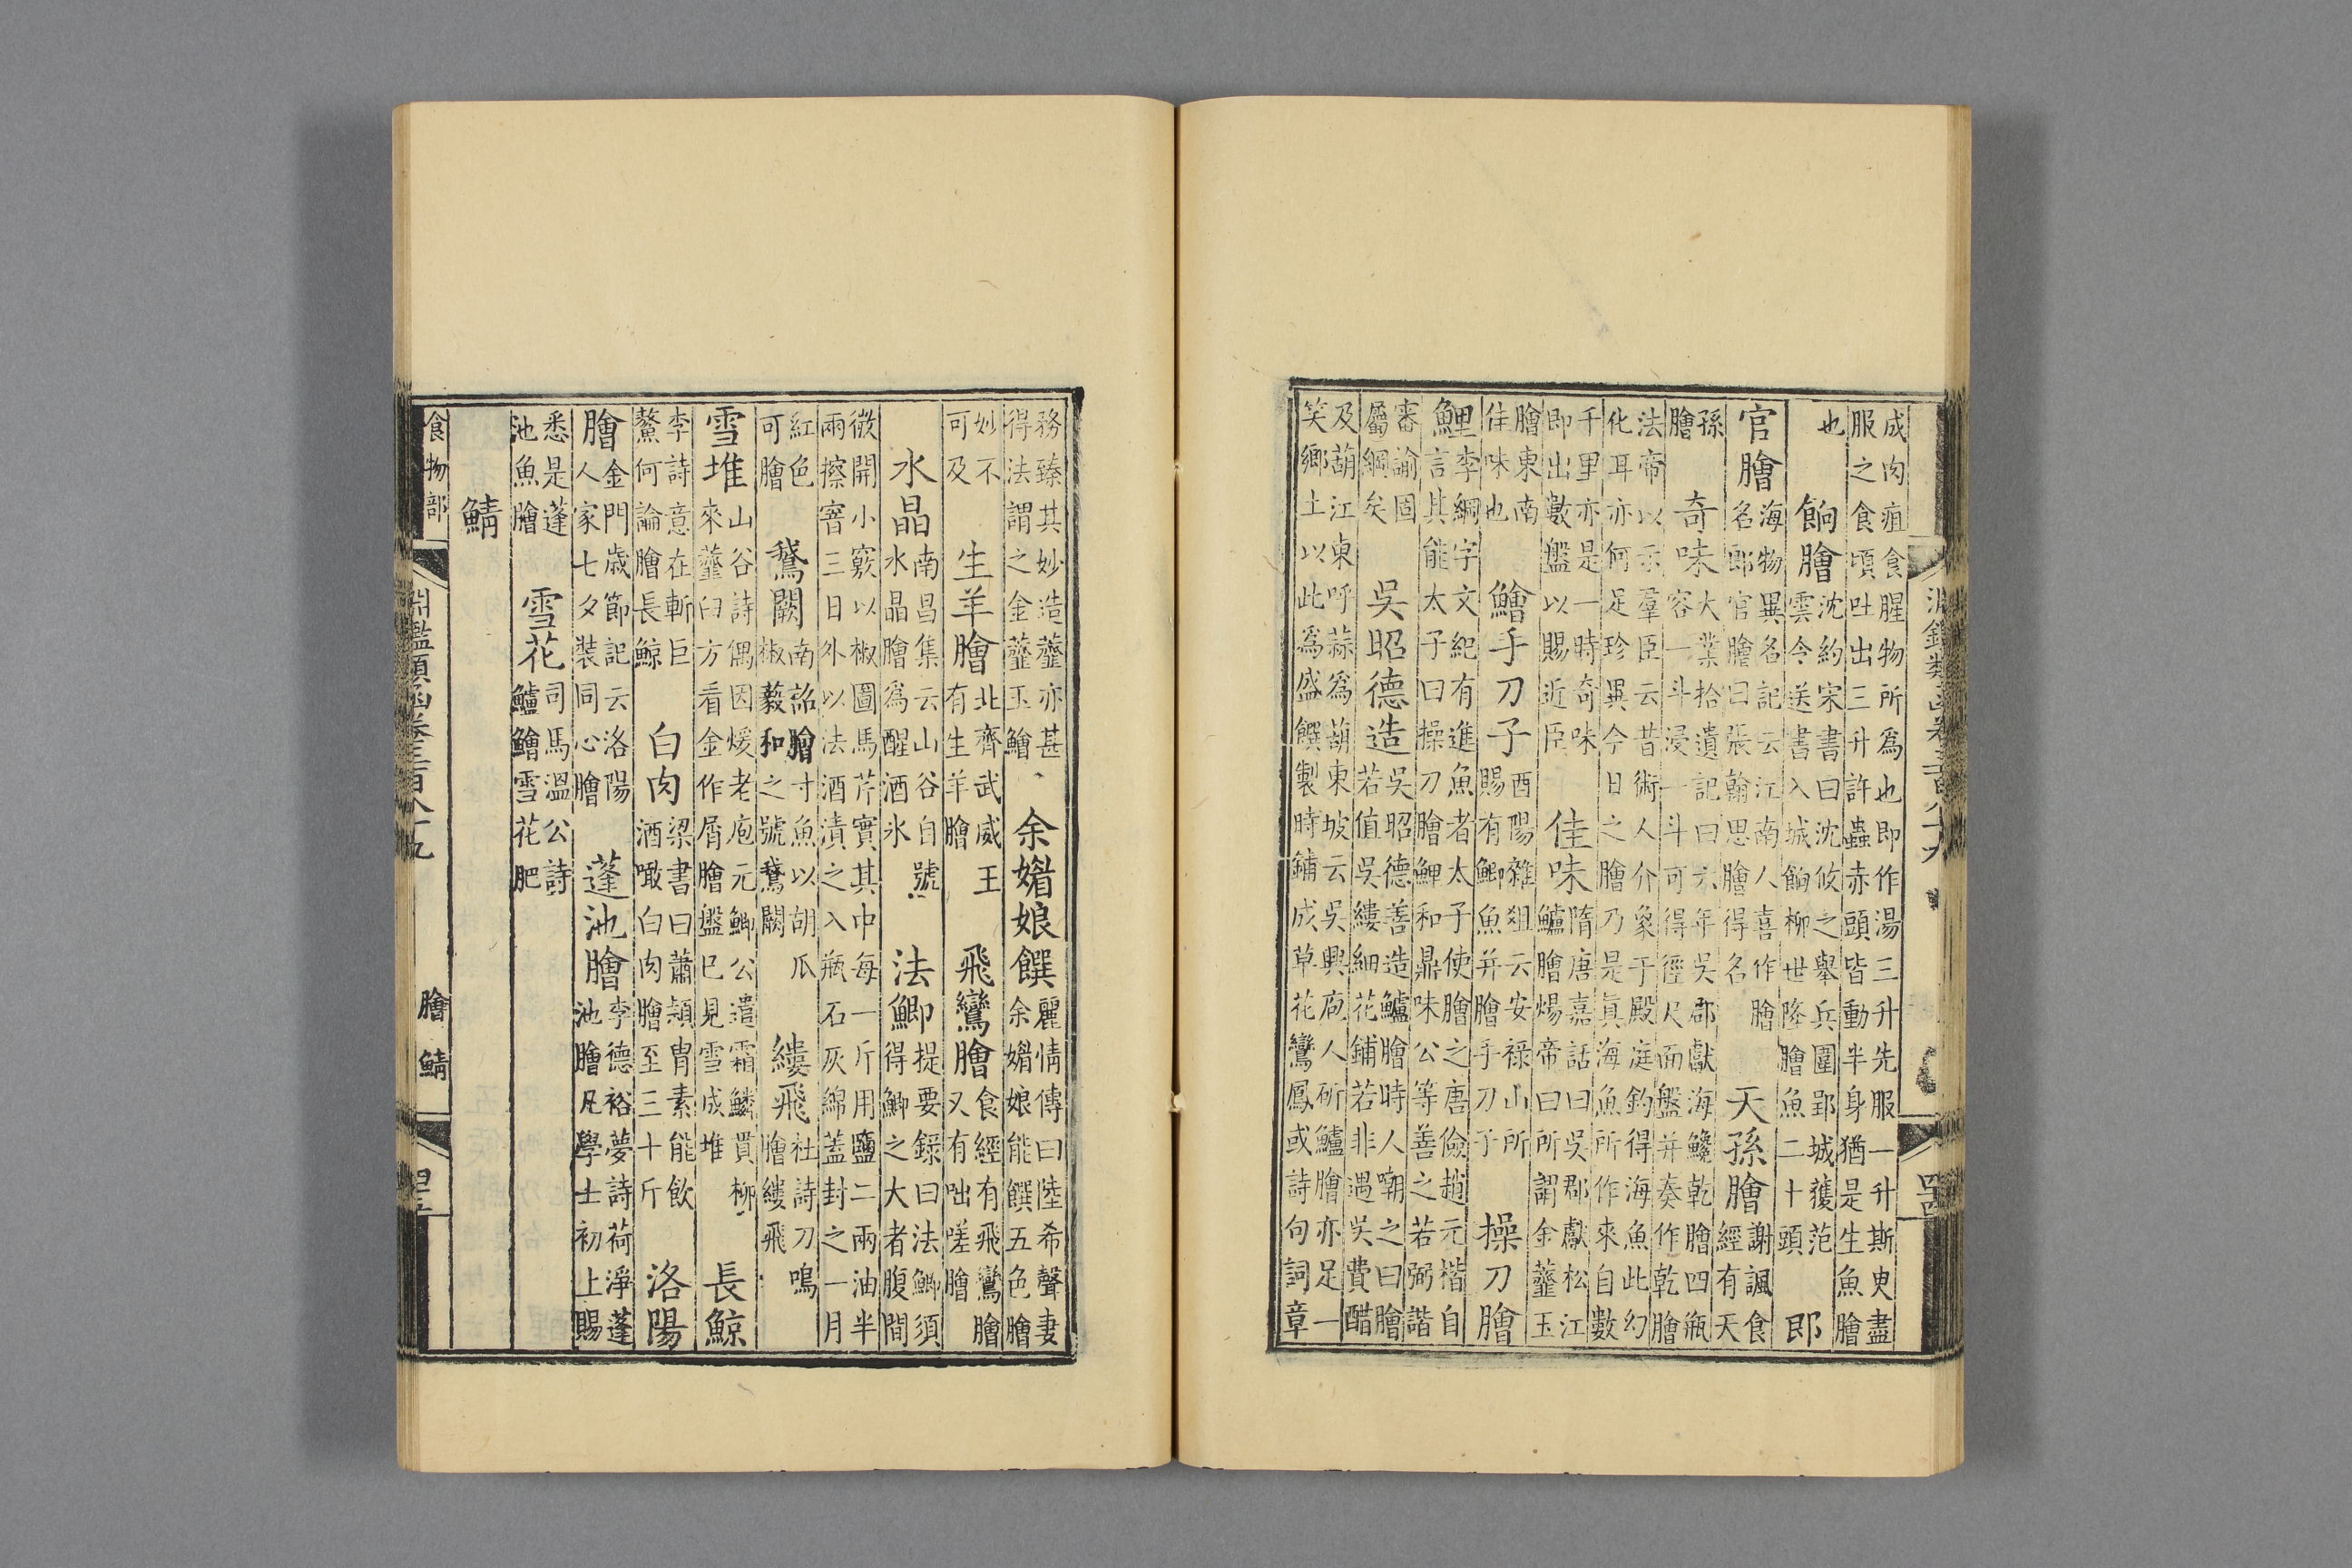 成肉疽食腥物所爲也即作湯三升先服一升斯臾盡
服之食頃吐出三升許蟲赤頭皆動半身猶是生魚膾
也
餉膾
沈約宋書曰沈攸之舉兵圍郢城獲范
雲令送書入城餉柳世隆膾魚二十頭
郎
官膾
海物異名記云江南人喜作膾
名郎官膾曰張翰思膾得名
天孫膾
謝諷食
經有天
孫
膾
奇味
大業拾遺記曰六年吳郡獻海鱠乾膾四瓶
容一斗浸一斗可得徑尺面盤并奏作乾膾
法帝以示羣臣云昔術人介象于殿庭釣得海魚此幻
化耳亦何足珍異今日之膾乃是真海魚所作來自數
千里亦是一時奇味
即出數盤以賜近臣
佳味
隋唐嘉話曰吳郡獻松江
鱸膾煬帝曰所謂金虀玉
膾東南
佳味也
鱠手刀子
酉陽雜俎云安祿山所
賜有鯽魚并膾手刀子
操刀膾
鯉
李綱字文紀有進魚者太子使膾之唐儉趙元楷自
言其能太子曰操刀膾鯉和鼎味公等善之若弼諧
審諭固
屬綱矣
吳昭德造
吳昭德善造鱸膾時人嘲之曰膾
若值吳縷細花鋪若非遇吳費醋
及葫江東呼蒜爲葫東坡云吳興庖人斫鱸膾亦足一
笑鄉土以此爲盛饌製時鋪成草花鸞鳳或詩句詞章
務臻其妙造虀亦甚
得法謂之金虀玉鱠
余媚娘饌
麗情傳曰陸希聲妻
余媚娘能饌五色膾
妙不
可及
生羊膾
北齊武威王
有生羊膾
飛鸞膾
食經有飛鸞膾
又有咄嗟膾
水晶
南昌集云山谷自號
水晶膾爲醒酒氷
法鯽
提要錄曰法鯽須
得鯽之大者腹間
微開小竅以椒圓馬芹實其中每一斤用鹽二兩油半
兩擦窨三日外以法酒漬之入瓶石灰綿蓋封之一月
紅色
可膾
鵞闕
南詔膾寸魚以胡瓜
椒藙和之號鵞闕
縷飛
杜詩刀鳴
膾縷飛
雪堆
山谷詩偶因煖老庖元鯽公遣霜鱗貫柳
來虀臼方看金作屑膾盤已見雪成堆
長鯨
李詩意在斬巨
鰲何論膾長鯨
白肉
梁書曰蕭頴胄素能飲
酒噉白肉膾至三十斤
洛陽
膾
金門歲節記云洛陽
人家七夕裝同心膾
蓬池膾
李德裕夢詩荷淨蓬
池膾凡學士初上賜
悉是蓬
池魚膾
雪花
司馬溫公詩
鱸鱠雪花肥
鯖
食物部
淵鑑類函卷三百八十九
膾 鯖